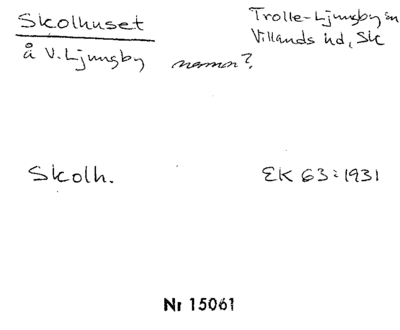 Skolhuset
å V. Ljungby namn?
Trolle-Ljungby sn
Villands hd, Sk
Skolh.
EK 63:1931
Nr 15061